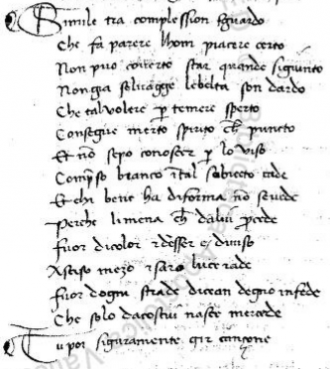 Simile tra complession sguardo
Che fa parere lhom piacere certo
Non puo coverto star quande sigiunto
Non gia seluagge lebelta son dardo
Che tal volere p temere sperto
Consegue merto spirito ch puncto
Et nō sepo conoscer p lo viso
Comp̄so branco ī tal subiecto cade
Et chi bene ha di forma nō seuede
Perche li mena ch dalui p̄cede
Fuor di color & desser e diuiso
Asciso mezo & saro luce rade
Fuor dogni fraude dicean degno infede
Che solo dacostui nasce mercede
Tu poi siguramente gir canzone